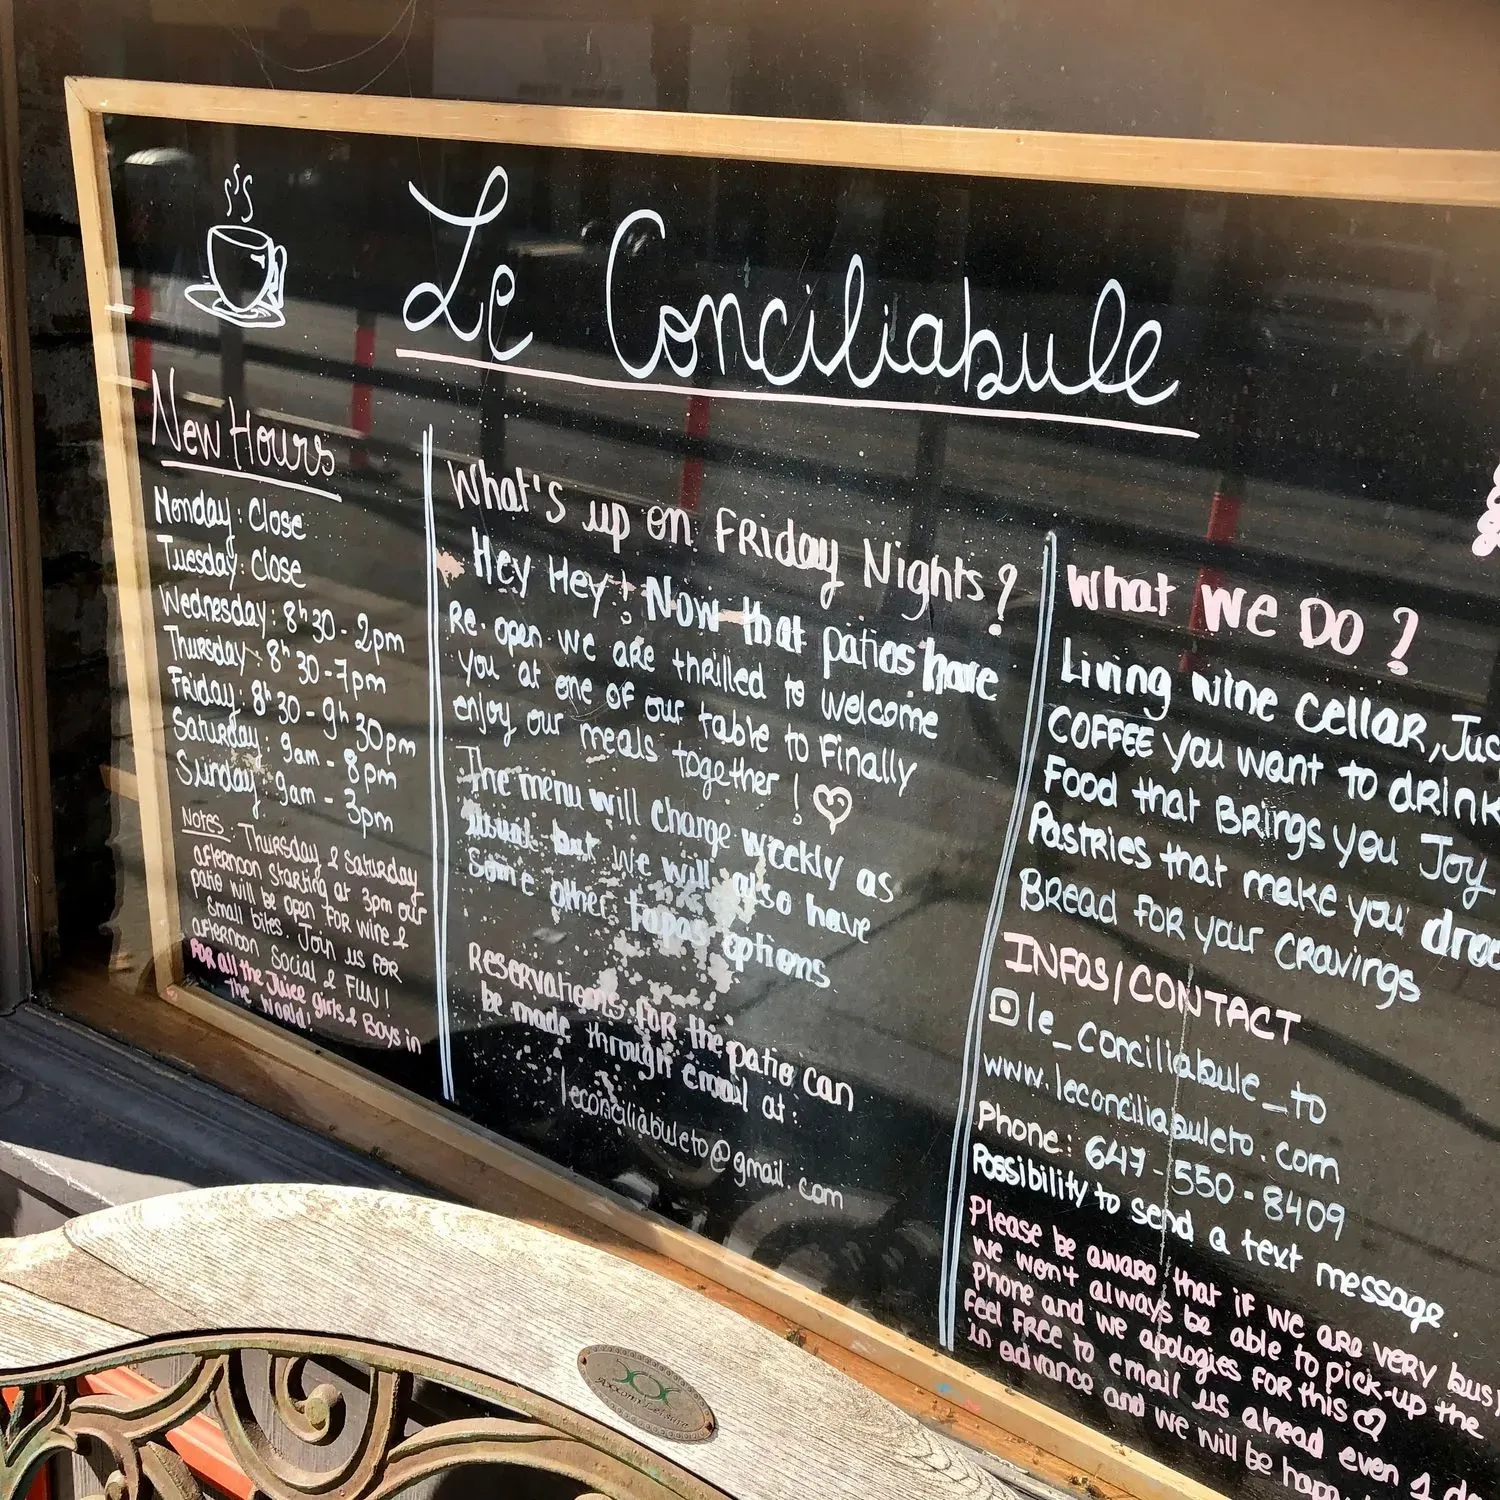 Le Conciliabule
New Hours
Monday: Close
Tuesday: Close
Wednesday: 8h30 - 2pm
Thursday: 8h30 - 7pm
Friday: 8h30 - 9h30pm
Saturday: 9am - 8pm
Sunday: 9am - 3pm
Notes: Thursday & Saturday
afternoon starting at 3pm our
patio will be open for wine &
small bites. Join us for
afternoon Social & FUN!
For all the Juice girls & Boys in
the World!
What's up on Friday Nights?
Hey Hey! Now that patios have
Re-open we are thrilled to welcome
you at one of our table to Finally
enjoy our meals together!
The menu will change weekly as
usual but we will also have
Some other tapas options
Reservations for the patio can
be made through email at:
leconciliabuleto@gmail.com
What We Do?
Living wine cellar, Juic
COFFEE you want to drink
Food that Brings you Joy
Pastries that make you droo
Bread for your cravings
INFOS/CONTACT
le_conciliabule_to
www.leconciliabuleto.com
Phone: 647-550-8409
Possibility to send a text message.
Please be aware that if we are very busy
we won't always be able to pick-up the
phone and we apologies for this
Feel Free to email us ahead even 1 da
in advance and we will be happ